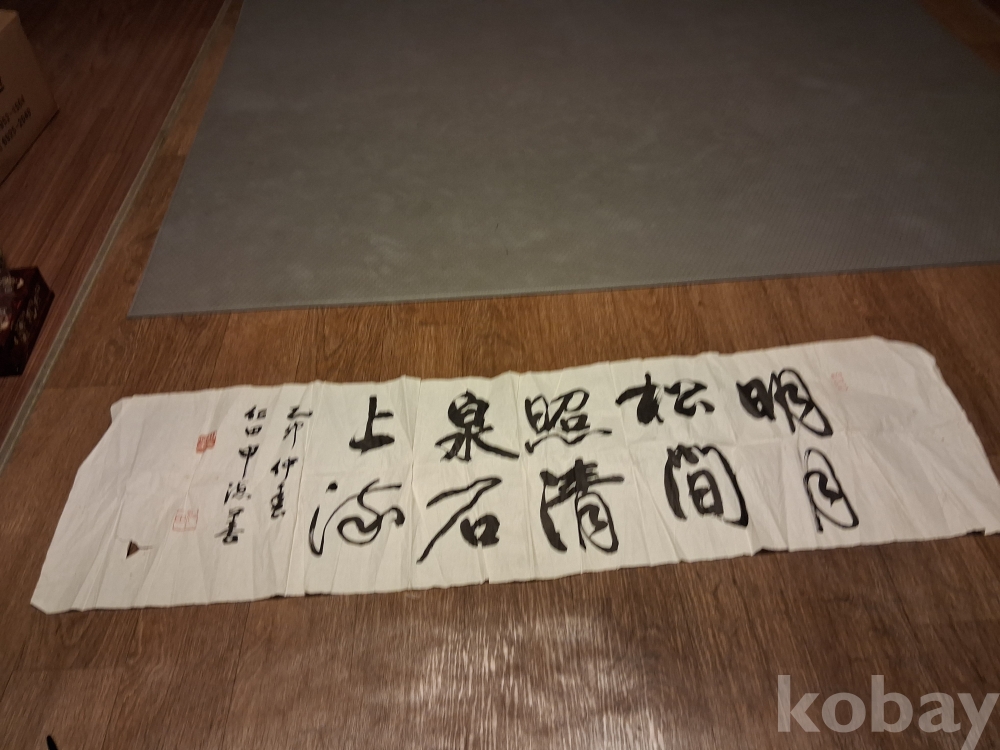 明月
松間
照清
泉石
上流
乙卯仲春
稻田中
kobay